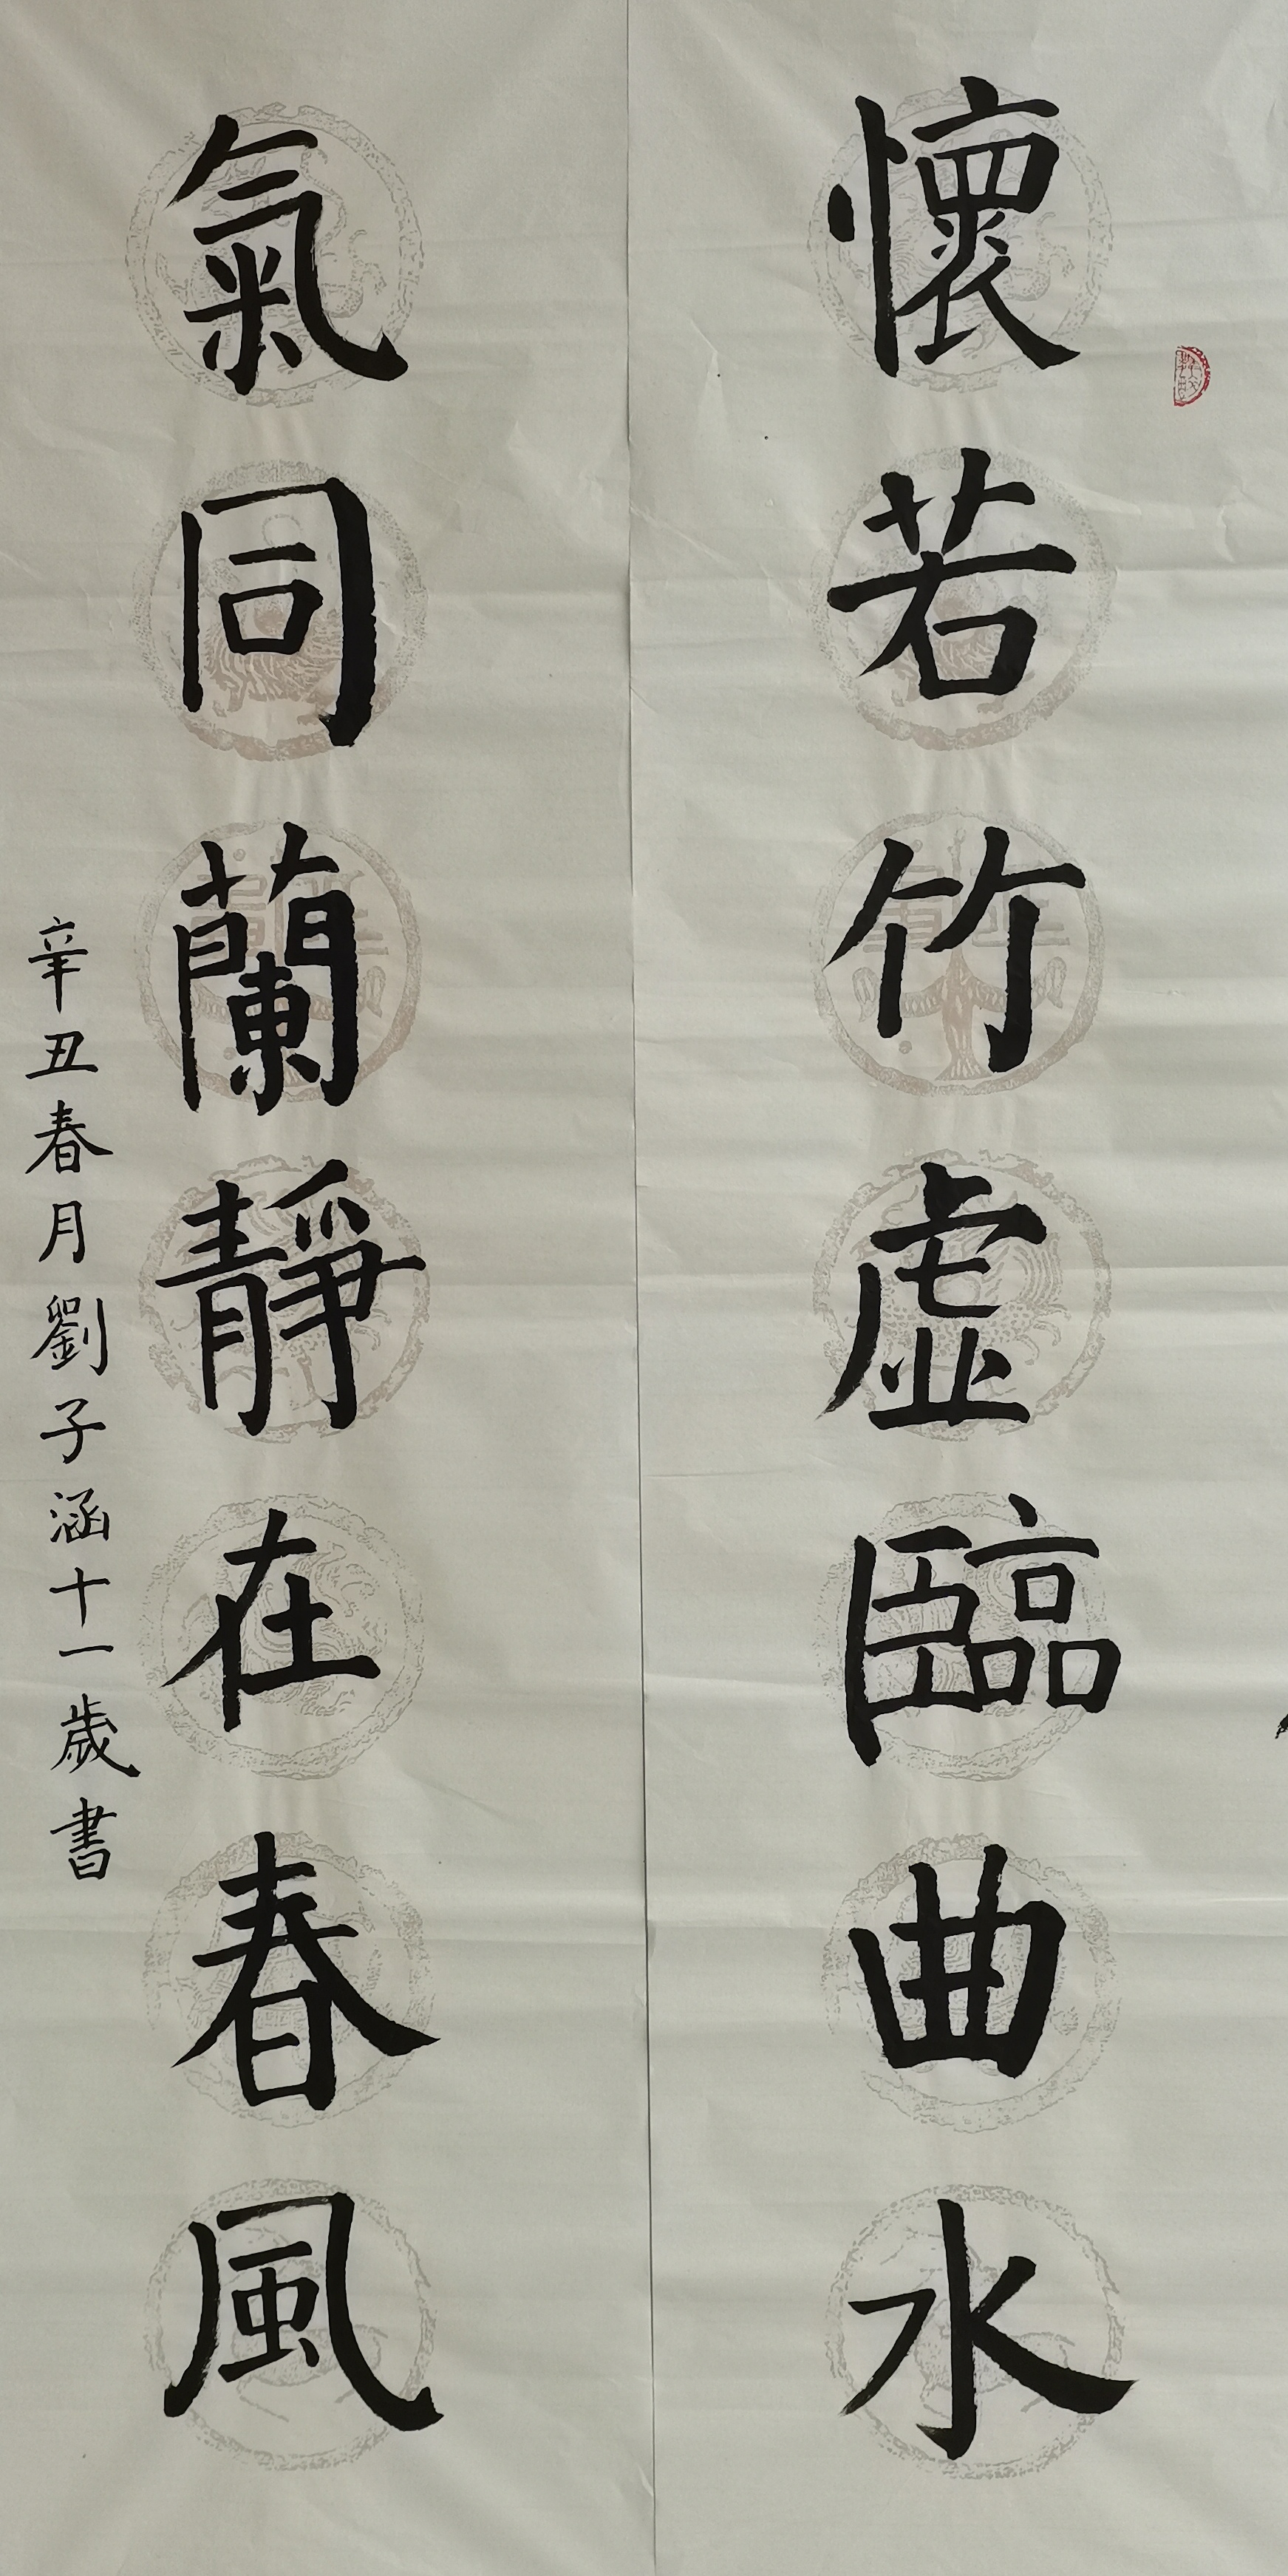 懷若竹虛臨曲水
氣同蘭靜在春風
辛丑春月劉子涵十一歲書